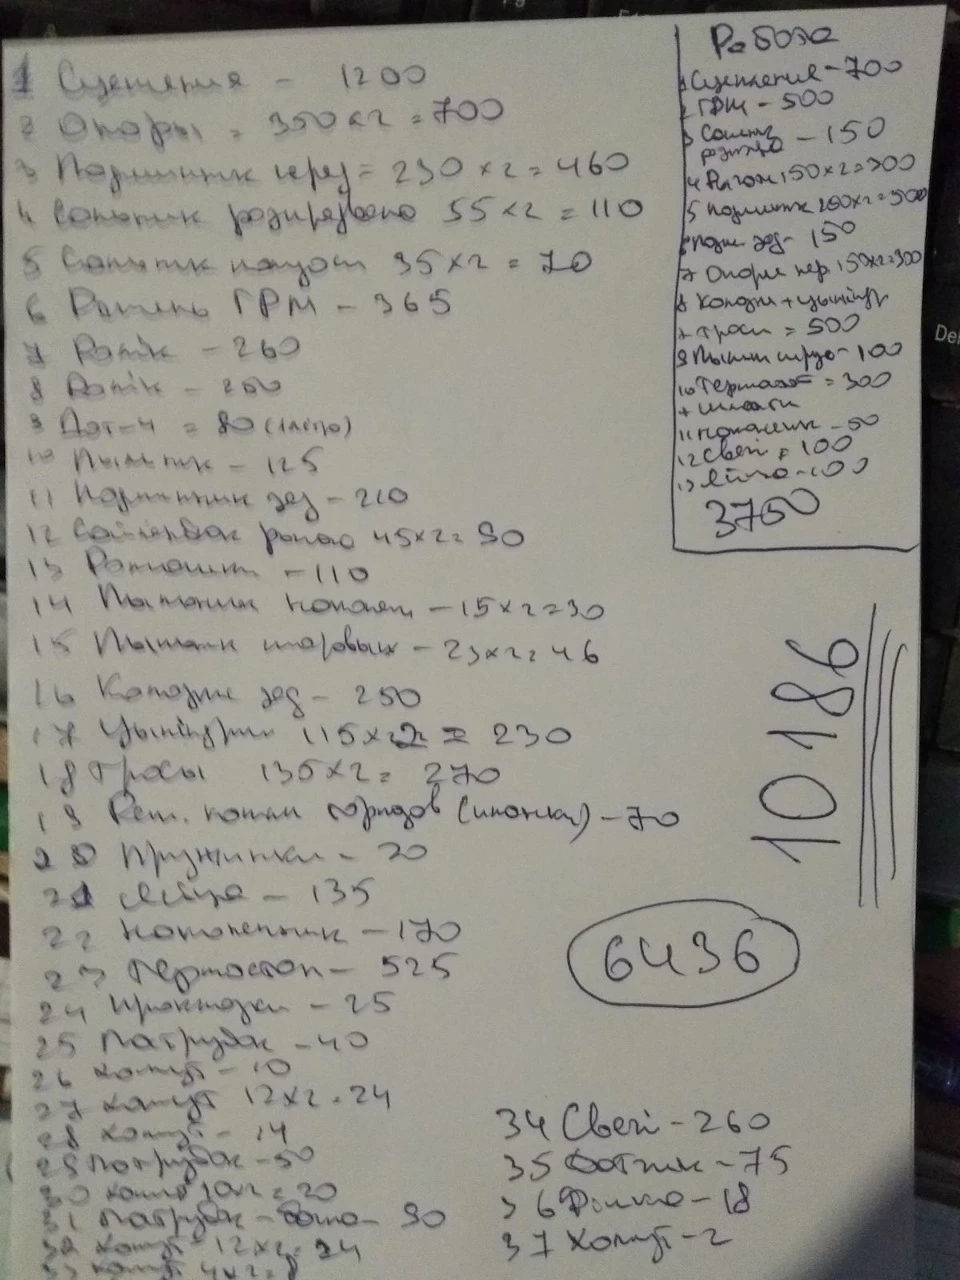 1 Сцепления - 1200
2 Опоры = 350 x 2 = 700
3 Подшипник перед = 230 x 2 = 460
4 55 x 2 = 110
5 35 x 2 = 70
6 Ремень ГРМ - 365
7 Ролік - 260
8 Ролік -
9 Дот-4 = 80 (1 літр)
10 Пыльник - 125
11 Подшипник зад - 210
12 Сайлентблок рычаг 45 x 2 = 90
13 - 110
14 Пыльник - 15 x 2 = 30
15 Пыльник шаровых - 23 x 2 = 46
16 Колодки зад - 250
17 Цыліндри 115 x 2 = 230
18 Тросы 135 x 2 = 270
19 - 70
20 Пружинки - 20
21 - 135
22 Наконечник - 170
23 Термостат - 525
24 Прокладки - 25
25 Патрубок - 40
26 Хомут - 10
27 Хомут 12 x 2 = 24
28 Хомут - 14
29 Патрубок - 50
30 Хомут 10 x 2 = 20
31 Патрубок - - 90
32 Хомут 12 x 2 = 24
33 Хомут 4 x 2 = 8
34 Свечі - 260
35 Датчик - 75
36 Фишка - 18
37 Хомут - 2
6436
Работа
1 Сцепление - 700
2 ГРМ - 500
3 Сальник
- 150
4 Рычаги 150 x 2 = 300
5 Подшипник 250 x 2 = 500
6 Подш зад - 150
7 Опоры пер 150 x 2 = 300
8 Колодки + цыліндр
+ троси = 500
9 Пыльник - 100
10 Термостат = 300
+
11 Наконечник - 50
12 Свечі = 100
13 - 100
3750
10186